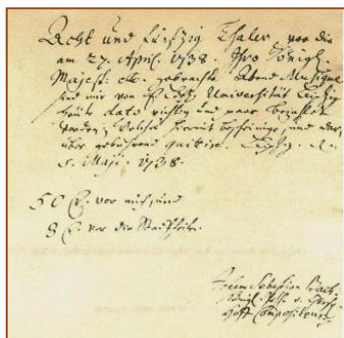 Acht und fünfzig Thaler, vor die
am 27. April. 1738. Ihro Königl.
Majest. gebrachte Abend Musique
sind mir von E. Löbl. Universität Leipzig
heute dato richtig und paar bezahlet
worden; welches hiermit bescheinige, und
über gebührend quittire. Leipzig. d.
5. Maji. 1738.
50 vor mich, und
8 vor die Stadtpfeifer.
Johann Sebastian Bach.
Königl. Pohl. u. Churf.
Hoff-Compositeur